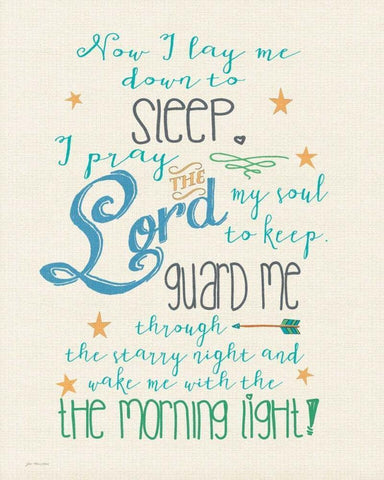 Now I lay me
down to
SLEEP.
I pray
THE
Lord
my soul
to keep.
GUARD ME
through
the starry night and
wake me with the
the morning light!